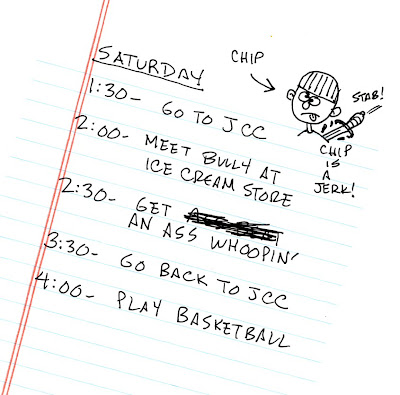 SATURDAY
1:30- GO TO JCC
2:00- MEET BULLY AT
ICE CREAM STORE
2:30- GET
AN ASS WHOOPIN'
3:30- GO BACK TO JCC
4:00- PLAY BASKETBALL
CHIP
STAB!
CHIP
IS
A
JERK!